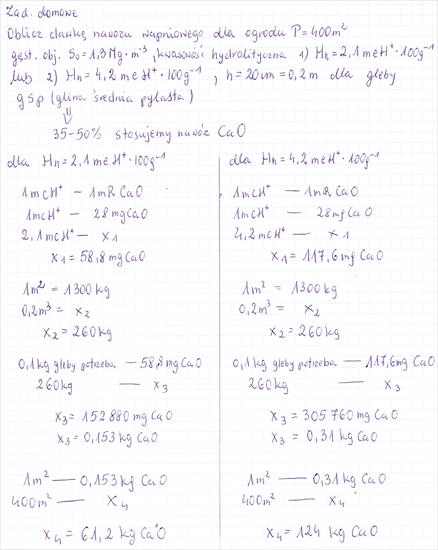 Zad. domowe
Oblicz dawkę nawozu wapniowego dla ogrodu P = 400m²
gęst. obj. So = 1,3 Mg·m⁻³, kwasowość hydrolityczna 1) Hh = 2,1 meH⁺·100g⁻¹
lub 2) Hh = 4,2 meH⁺·100g⁻¹, h = 20cm = 0,2m dla gleby
gśp (glina średnia pylasta)
⇓
35-50% stosujemy nawóz CaO
dla Hh = 2,1 meH⁺·100g⁻¹
1meH⁺ – 1mR CaO
1meH⁺ – 28mgCaO
2,1meH⁺ – x₁
x₁ = 58,8mgCaO
1m² = 1300kg
0,2m³ = x₂
x₂ = 260kg
0,1kg gleby potrzeba – 58,8mg CaO
260kg – x₃
x₃ = 152880mgCaO
x₃ = 0,153kg CaO
1m² – 0,153kg CaO
400m² – x₄
x₄ = 61,2 kg CaO
dla Hh = 4,2meH⁺·100g⁻¹
1meH⁺ – 1mR CaO
1meH⁺ – 28mg CaO
4,2meH⁺ – x₁
x₁ = 117,6mg CaO
1m² = 1300kg
0,2m³ = x₂
x₂ = 260kg
0,1kg gleby potrzeba – 117,6mg CaO
260kg – x₃
x₃ = 305760mg CaO
x₃ = 0,31kg CaO
1m² – 0,31kg CaO
400m² – x₄
x₄ = 124 kg CaO